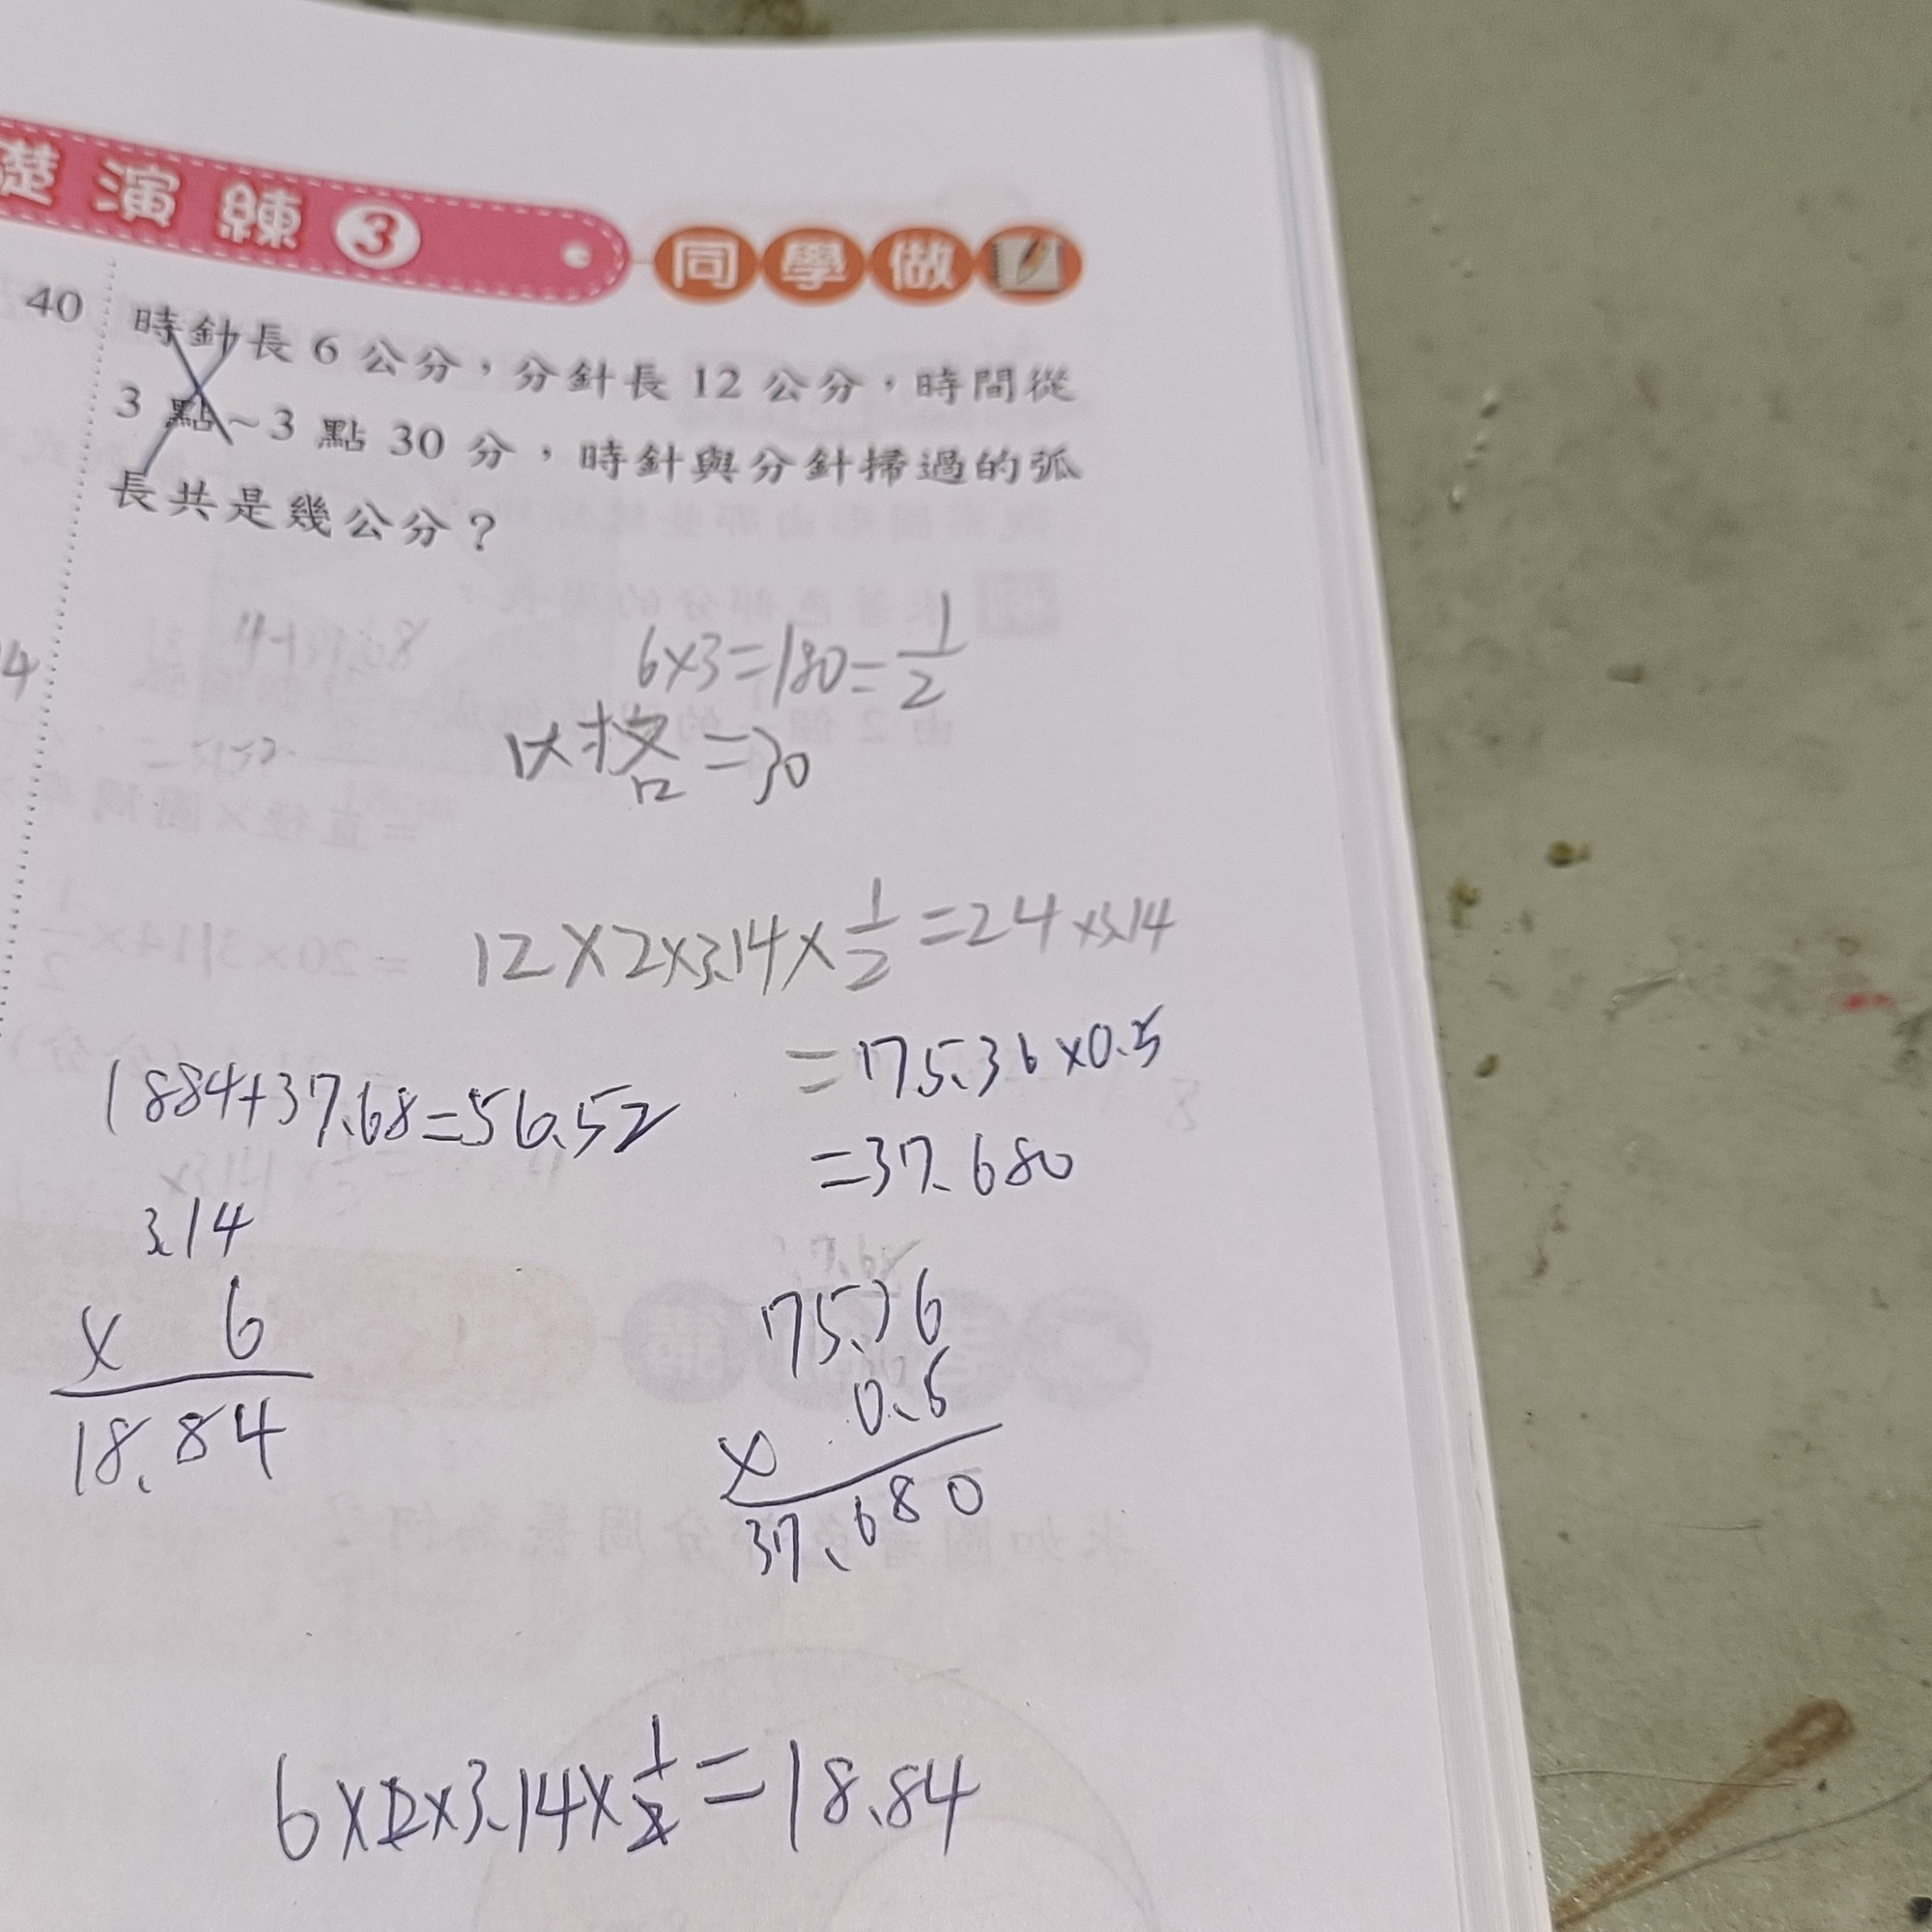 礎演練3 同學做
40
時針長 6 公分，分針長 12 公分，時間從
3 點~3 點 30 分，時針與分針掃過的弧
長共是幾公分？
6×3=180=1/2
格=30
4
12×2×3.14×1/2=24×3.14
=75.36×0.5
=37.680
1884+37.68=56.52
3.14
× 6
18.84
75.36
0.5
×
37.680
6×2×3.14×1/2=18.84